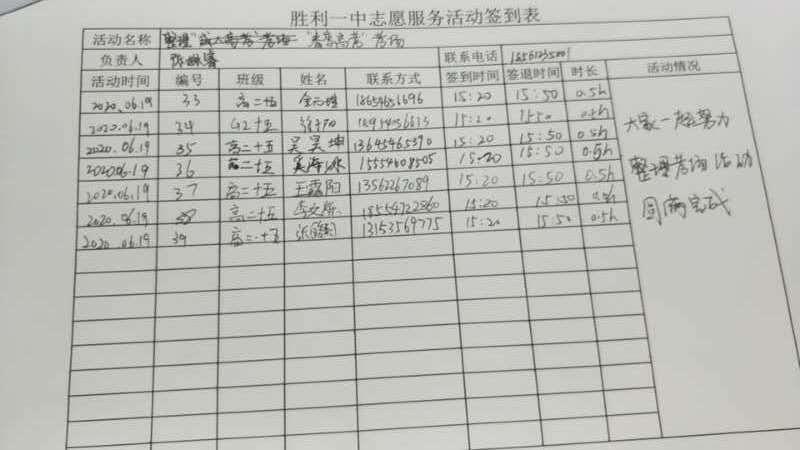 胜利一中志愿服务活动签到表
活动名称 整理 "春季高考" 考场
负责人 联系电话
活动时间 编号 班级 姓名 联系方式 签到时间 签退时间 时长 活动情况
2020.06.19 33 高二十五 18654656696 15:20 15:50 0.5h
2020.06.19 34 G2十五 15:20 0.5h
2020.06.19 35 高二十五 吴昊坤 13645465390 15:20 15:50 0.5h
2020.06.19 36 高二十五 15554608505 15:20 15:50 0.5h
2020.06.19 37 高二十五 王露阳 13562267089 15:20 15:50 0.5h
2020.06.19 38 高二十五 18554722860 15:20 15:50 0.5h
2020.06.19 39 高二十五 13153569775 15:20 15:50 0.5h
大家一起努力
整理考场活动
圆满完成